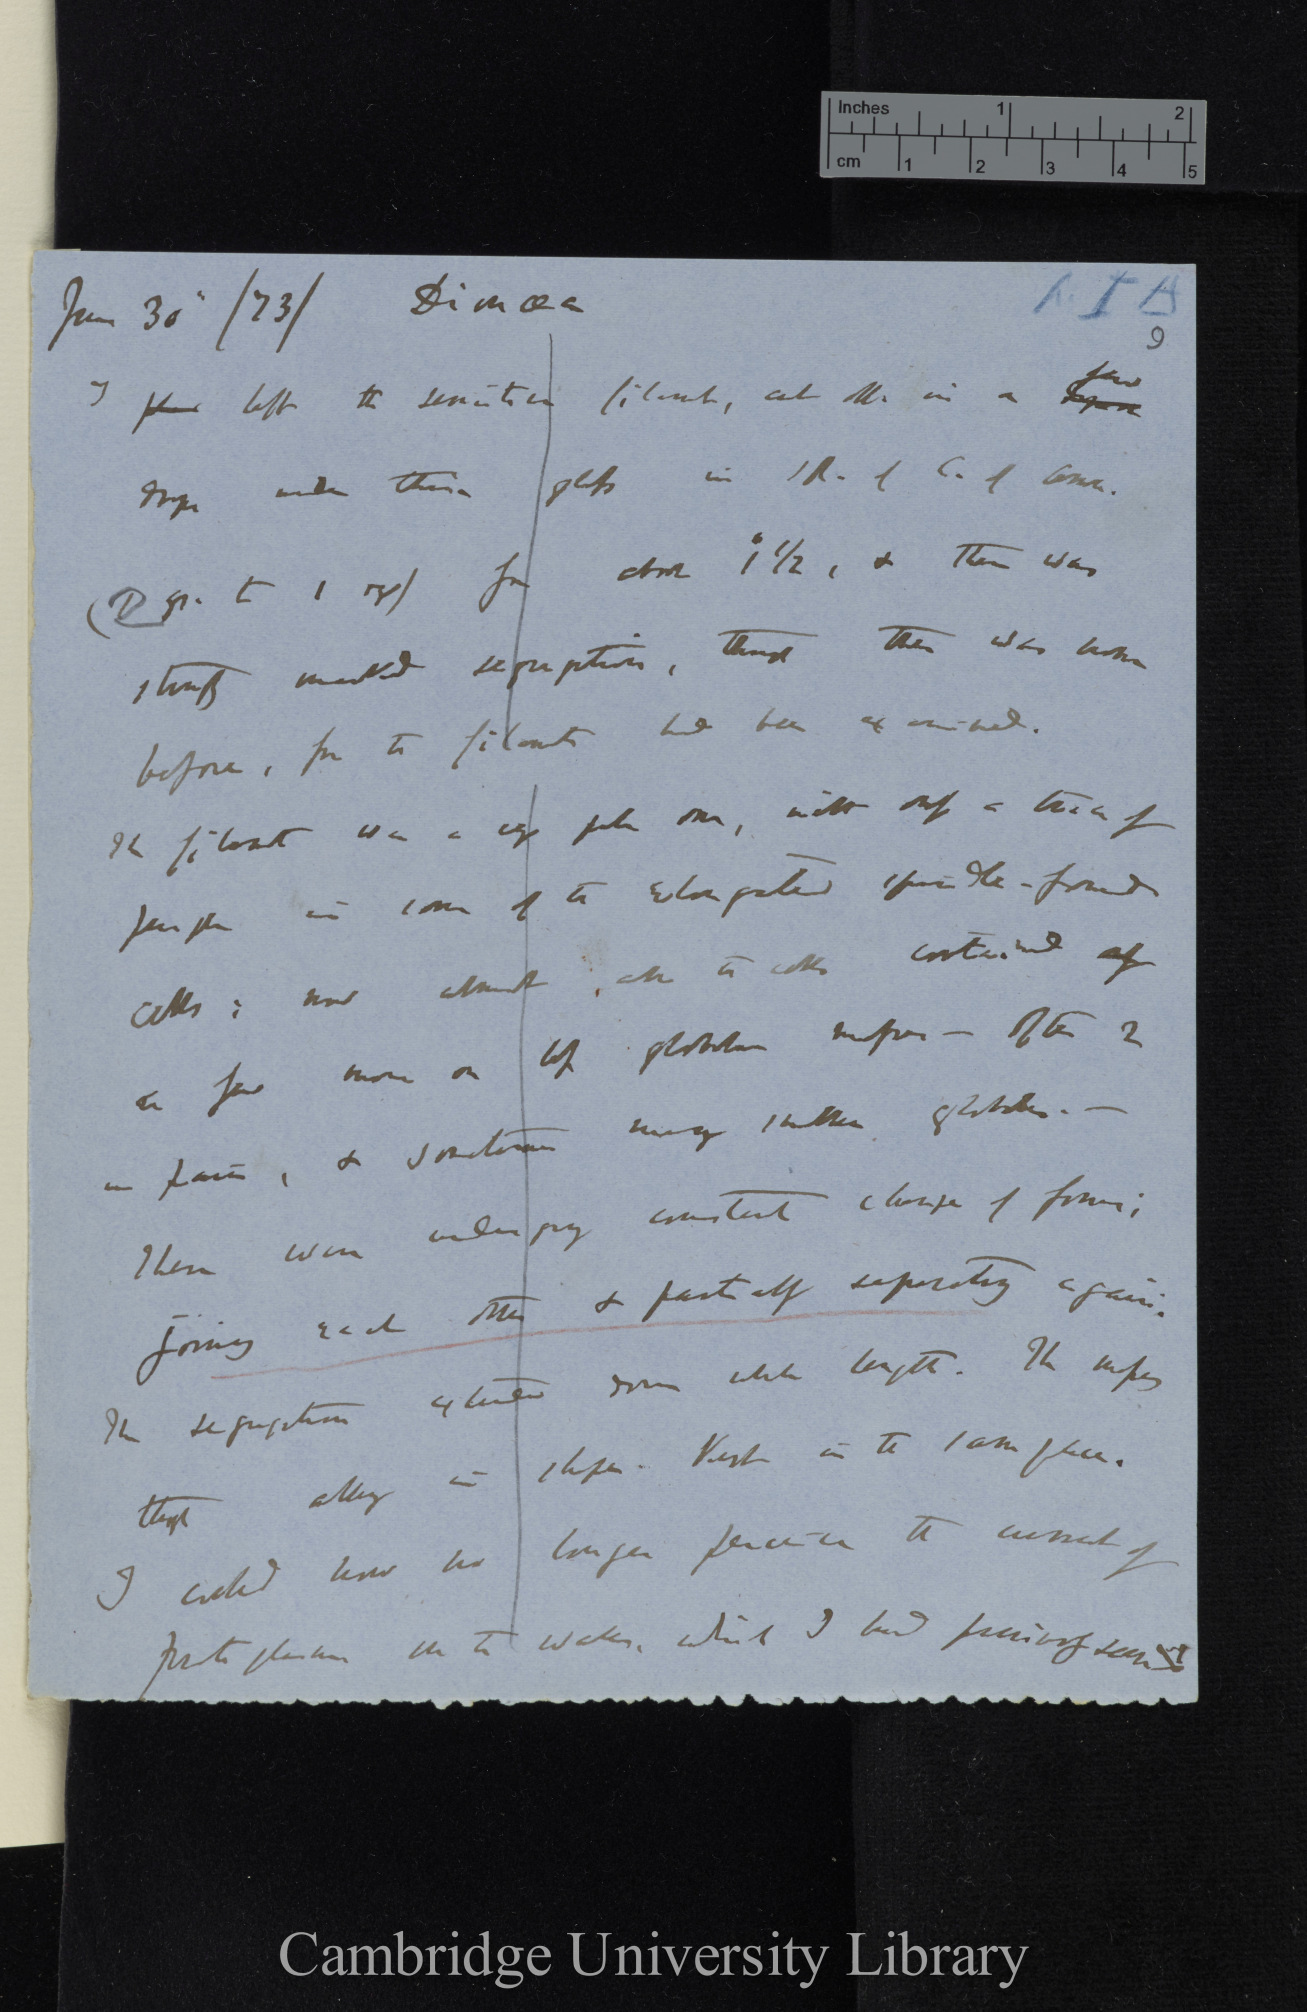 Inches 1 2
cm 1 2 3 4 5
June 30th /73/ Dionæa
9
I left the sensitive filament, cut off in a few
drops under thin glass in sol. of C. of Ammon.
gr. to 1 oz) for about 1° 1/2, & there was
strongly marked segregation, though there was none
before, for the filament had been examined.
The filament was a very pale one, with only a trace of
purple in some of the elongated spindle-formed
cells; now almost all the cells contained
a few more or less globular masses — often 2
in pair, & sometimes many smaller globules. —
These were undergoing constant change of form;
joining each other & partially separating again.
The segregation extended down whole length. The masses
though altering in shape. Kept in the same place.
I could now no longer perceive the current of
protoplasm on the walls, which I had previously seen
Cambridge University Library